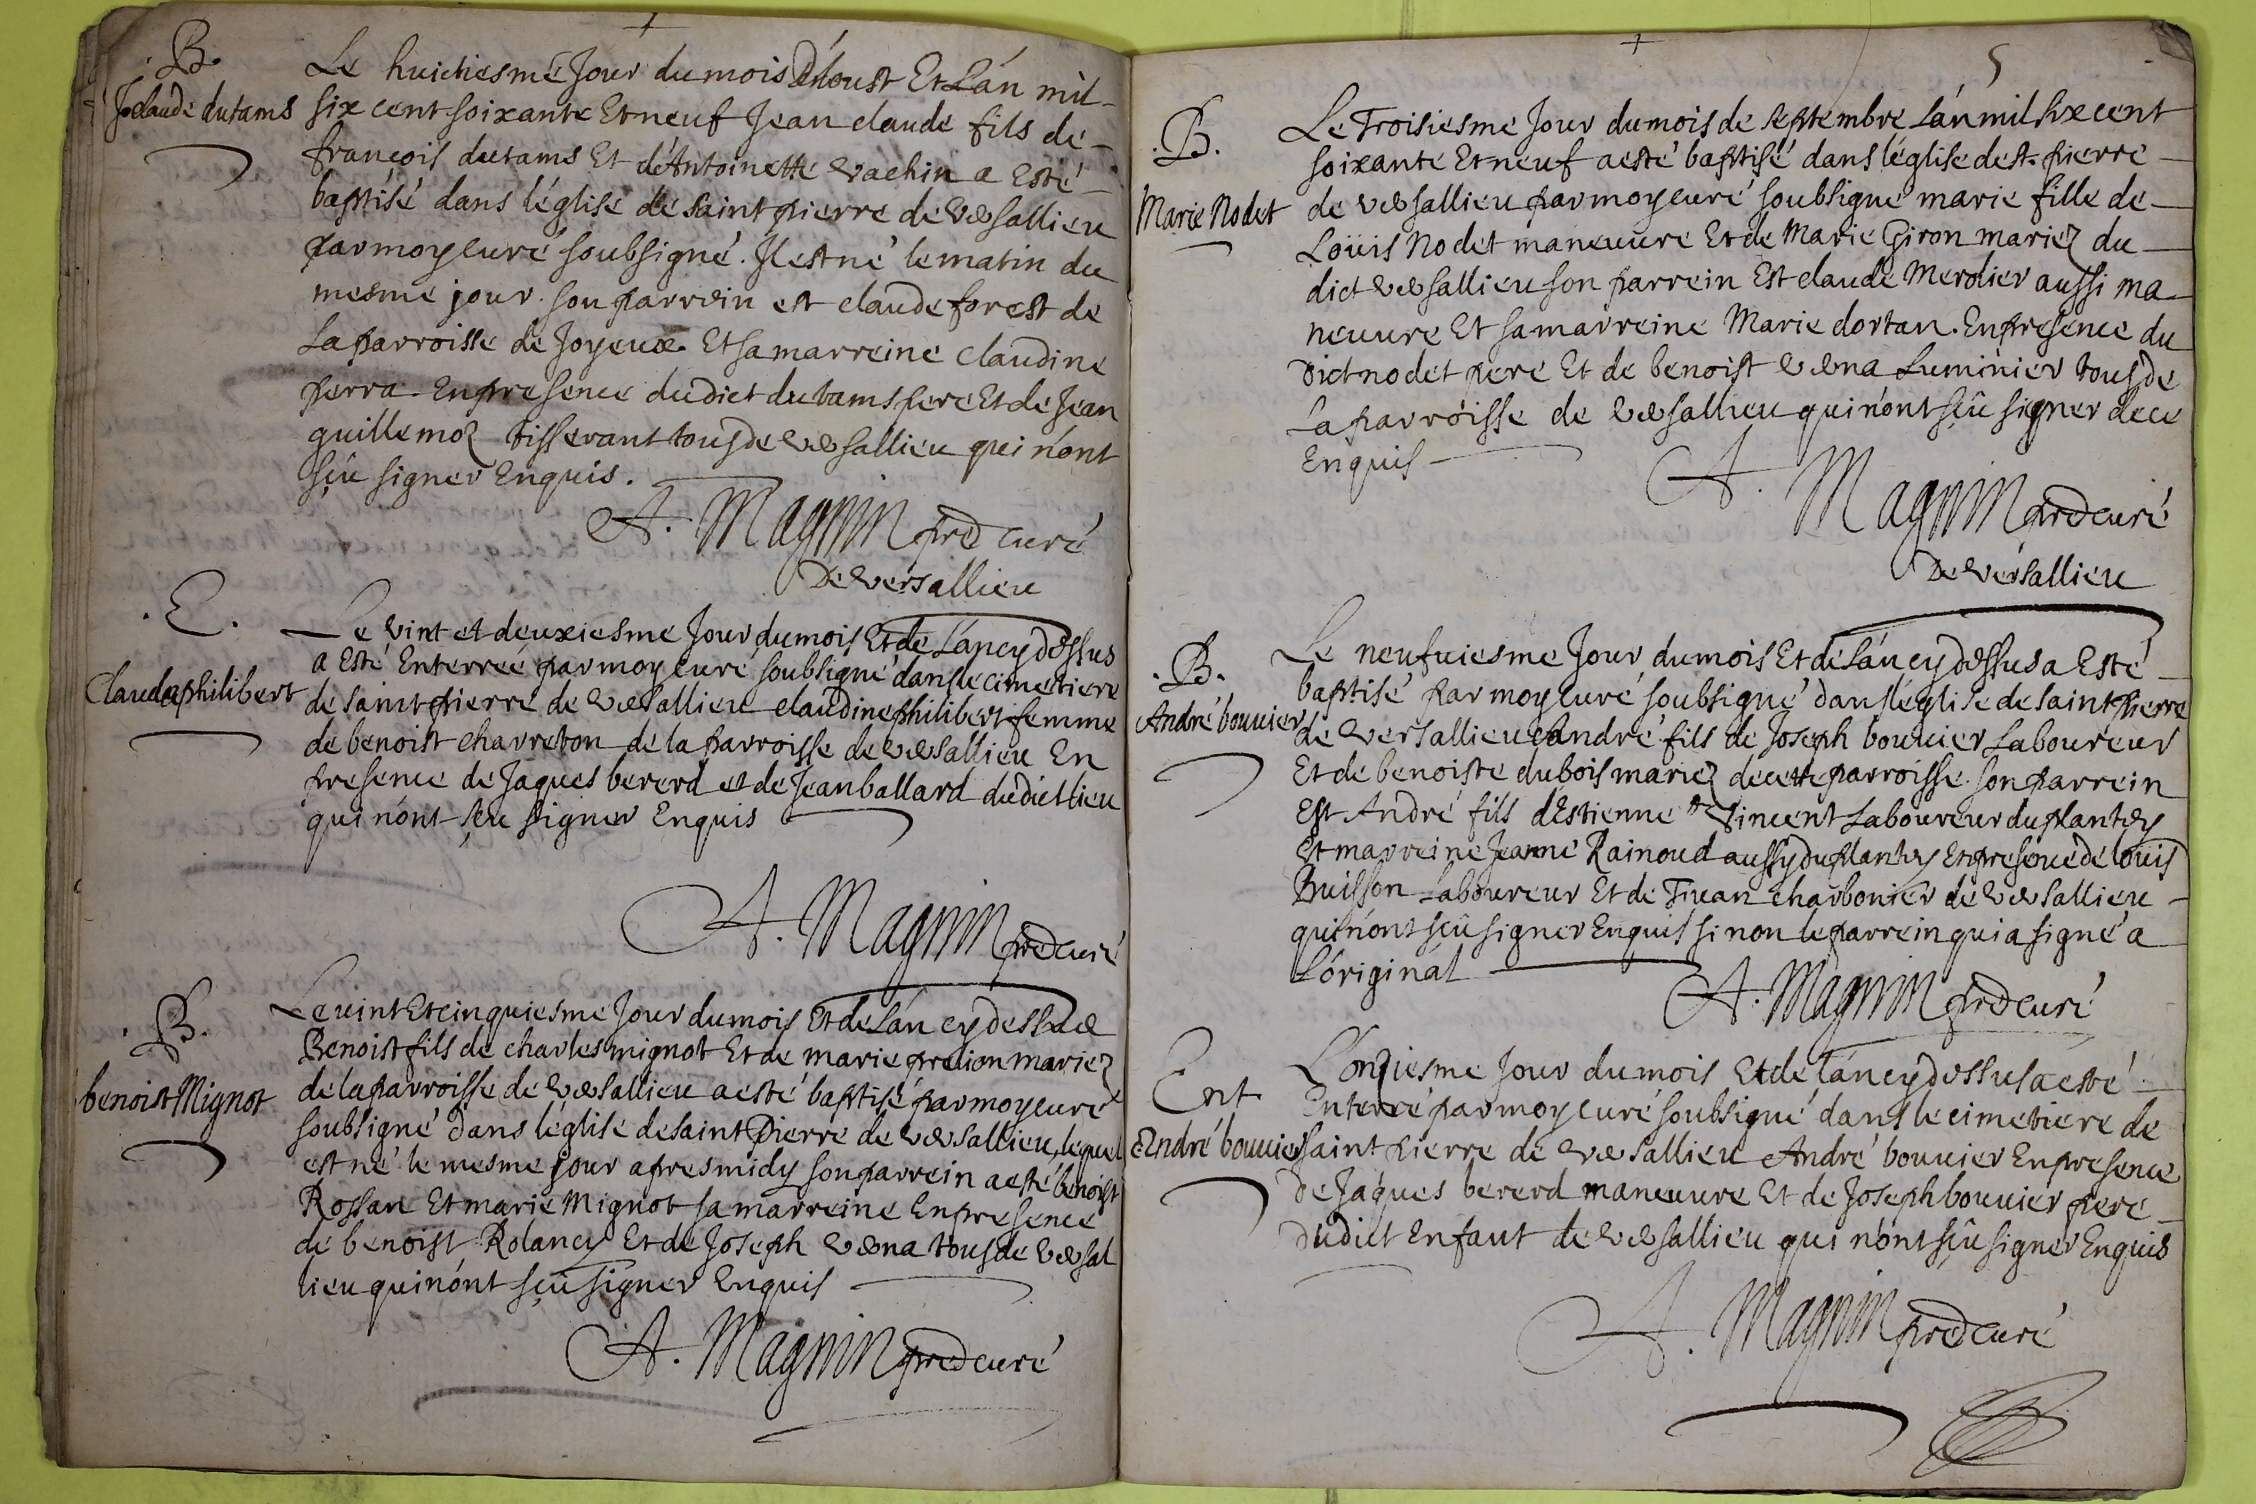 B.
J claude dutams
Le huictiesme Jour du mois D'Aoust Et L'an mil-
six cent soixante Et neuf Jean claude fils de-
françois dutams Et d'Antoinette vachin a Esté
baptisé dans l'église de saint pierre de versallieu
par moy curé soubsigné. Il est né le matin du
mesme jour. son parrein est claude forest de
La parroisse de Joyeux. Et sa marreine claudine
perra. En presence dudict dutams pere Et de Jean
guillemoz tisserant tous de versallieu qui n'ont
sçû signer Enquis.
A. Magnin pre curé
De versallieu
E.
Claudine philibert
Le vint et deuxiesme Jour du mois Et de L'an cy dessus
a Esté Enterreé par moy curé soubsigné dans le cimetiere
de saint pierre de versallieu claudine philibert femme
de benoist charreton de la parroisse de versallieu En
presence de Jaques bererd et de Jean ballard dudict lieu
qui n'ont sçu signer Enquis
A. Magnin pre curé
B.
benoist Mignot
Le vint Et cinquiesme Jour du mois Et de L'an cy dessus
Benoist fils de charles mignot Et de marie prelion mariez
de la parroisse de versallieu a esté baptisé par moy curé
soubsigné dans l'église de saint Pierre de versallieu, lequel
est né le mesme jour apres midy son parrein a esté benoist
Rossan Et marie Mignot sa marreine En presence
de benoist Rolancy Et de Joseph vena tous de versal
lieu qui n'ont sçû signer Enquis
A. Magnin pre curé
5
B.
Marie Nodet
Le Troisiesme Jour du mois de septembre L'an mil six cent
soixante Et neuf a esté baptisé dans l'église de st. pierre
de versallieu par moy curé soubsigné marie fille de
Loüis Nodet maneuure Et de Marie Giron mariez du
dict versallieu son parrein Est claude Merolier aussi ma
neuure Et sa marreine Marie dortan. En presence du
Dict nodet pere Et de benoist vena Luminier tous de
La parroisse de versallieu qui n'ont sçû signer de ce
Enquis
A. Magnin pre curé
De versallieu
B.
André bouuier
Le neufuiesme Jour du mois Et de L'an cy dessus a Esté
baptisé par moy curé soubsigné dans l'église de saint pierre
de versallieu André fils de Joseph bouuier Laboureur
Et de benoiste dubois mariez de cette parroisse. son parrein
Est André fils d'Estienne Vincent Laboureur du plantey
Et marreine Jeanne Rainoud aussy du plantey En presence de Louis
Buisson Laboureur Et de Iuan charbonier de versallieu
qui n'ont sçû signer Enquis si non le parrein qui a signé a
L'original
A. Magnin pre curé
Ent
André bouuier
L'onziesme Jour du mois Et de l'an cy dessus a esté
Enterré par moy curé soubsigné dans le cimetiere de
saint pierre de versallieu André bouuier En presence
De Jaques bererd maneuure Et de Joseph bouuier pere
Dudict Enfant de versallieu qui n'ont sçû signer Enquis
A. Magnin pre curé